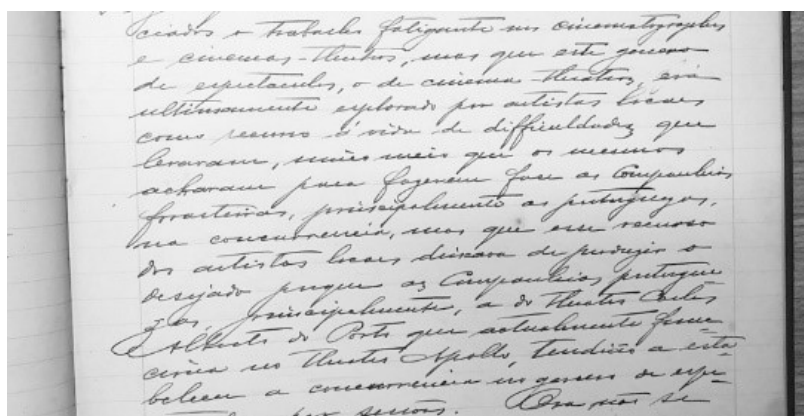 ciados o trabalho fatigante nos cinematographos
e cinemas-theatros, mas que este genero
de espectaculos, o de cinema-theatros, era
ultimamente explorado por artistas locaes
como recurso á vida de difficuldades que
levavam, unico meio que os mesmos
acharam para fazerem face as Companhias
forasteiras, principalmente as portuguezas,
na concurrencia, mas que esse recurso
dos artistas locaes deixava de produzir o
desejado porque as Companhias portugue-
zas, principalmente, a do theatro Carlos
Alberto do Porto que actualmente func-
ciona no theatro Apollo, tendião a esta-
belecer a concurrencia no genero de espe-
por sessões. Ora não se